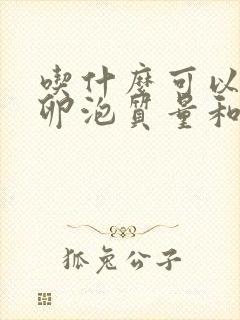 喫什麼可以
卵泡質量和
狐兔公子